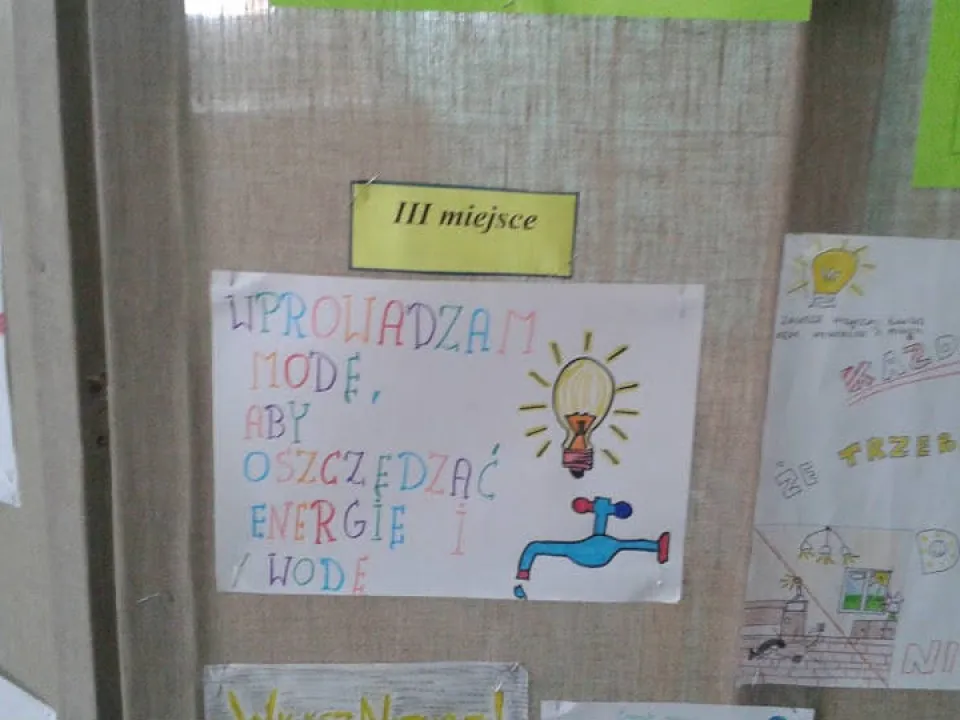 III miejsce
WPROWADZAM
MODĘ,
ABY
OSZCZĘDZAĆ
ENERGIĘ I
WODĘ
KAŻD
ŻE
TRZEB
NI